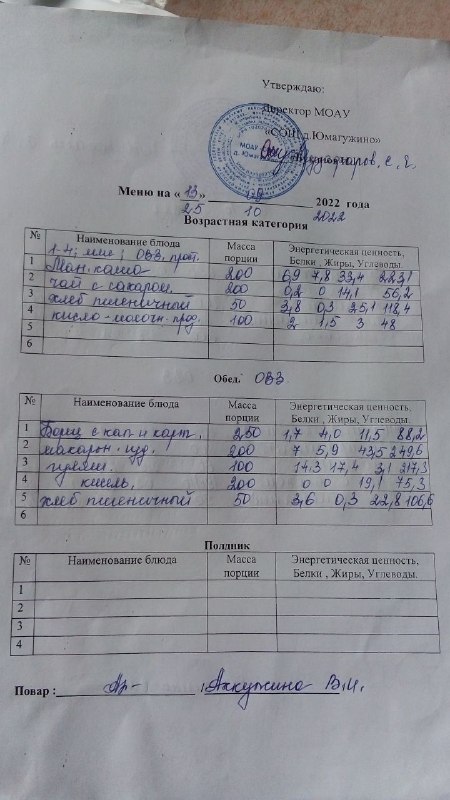 Утверждаю:
Директор МОАУ
«СОШ д.Юмагужино»
МОАУ
Меню на « 13 » 2022 года
25 10 2022
Возрастная категория
№ Наименование блюда Масса порции Энергетическая ценность, Белки , Жиры, Углеводы.
1-4; ОВЗ,
1 Ман. каша 200 6,9 7,8 33,4 223,1
2 чай с сахаром. 200 0,2 0 14,1 56,2
3 хлеб пшеничный 50 3,8 0,3 25,1 118,4
4 кисло-молочн. прод. 100 2 1,5 3 48
5
6
Обед. ОВЗ
№ Наименование блюда Масса порции Энергетическая ценность, Белки , Жиры, Углеводы.
1 Борщ с кап и карт. 250 1,7 4,0 11,5 88,2
2 макарон. изд. 200 7 5,9 43,5 249,6
3 гуляш. 100 14.3 17,4 3,1 217,3
4 кисель, 200 0 0 19,1 75,3
5 хлеб пшеничный 50 3,6 0,3 22,8 106,6
6
Полдник
№ Наименование блюда Масса порции Энергетическая ценность, Белки , Жиры, Углеводы.
1
2
3
4
Повар : Аккужина В.И.